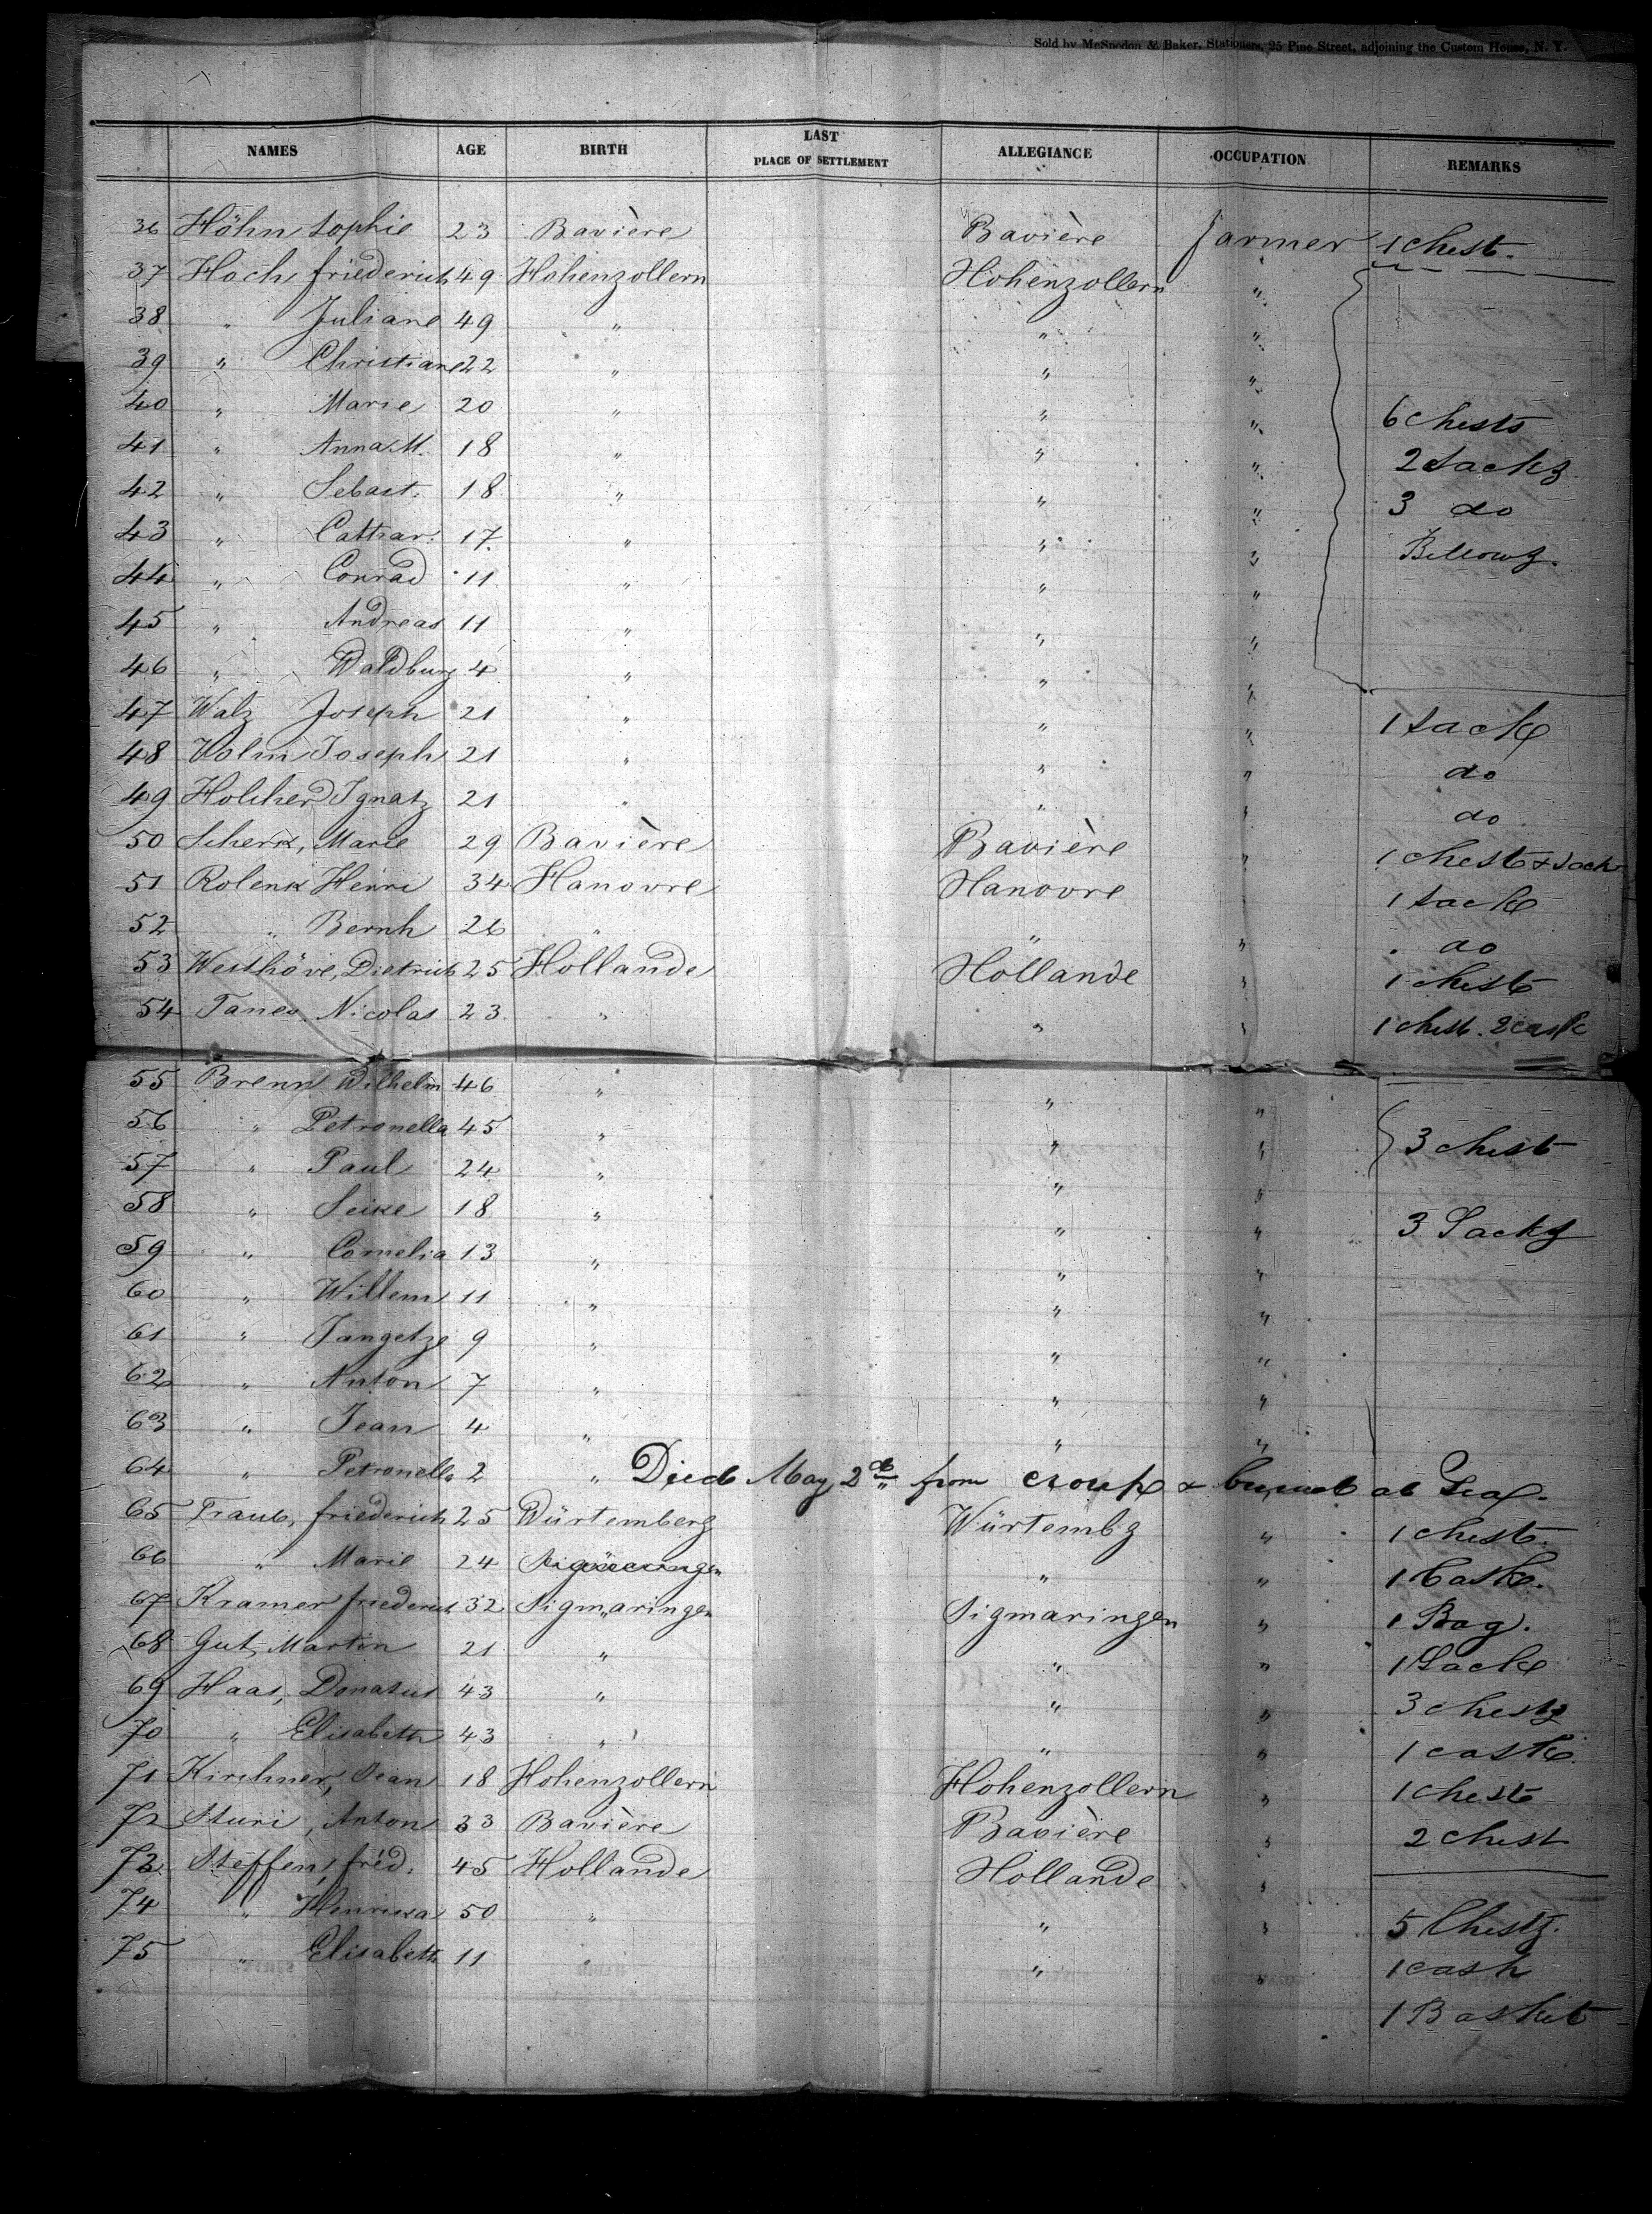 Sold by McSpedon & Baker, Stationers, 25 Pine Street, adjoining the Custom House, N. Y.
NAMES AGE BIRTH LAST PLACE OF SETTLEMENT ALLEGIANCE OCCUPATION REMARKS
36 Höhn Sophie 23 Bavière Bavière farmer 1 Chest.
37 Hoch, friederich 49 Hohenzollern Hohenzollern "
38 " Juliane 49 " " "
39 " Christiane 22 " " "
40 " Marie 20 " " " 6 Chests
41 " Anna M. 18 " " " 2 Sacks
42 " Sebast. 18 " " " 3 do
43 " Cathar. 17 " " " Billows.
44 " Conrad 11 " " "
45 " Andreas 11 " " "
46 " Waldburg 4 " " "
47 Walz Joseph 21 " " " 1 Sack
48 Volm Joseph 21 " " " do
49 Holcher Ignatz 21 " " " do
50 Scherk, Marie 29 Bavière Bavière " 1 chest & Sack
51 Rolenk Henri 34 Hanovre Hanovre 1 Sack
52 " Bernh 26 " " " do
53 Westhöve, Dietrich 25 Hollande Hollande " 1 Chest
54 Tanes, Nicolas 23 " " " 1 chest. 2 cask
55 Brenn Wilhelm 46 " " "
56 " Petronella 45 " " " 3 chest
57 " Paul 24 " " "
58 " Seike 18 " " " 3 Sacks
59 " Cornelia 13 " " "
60 " Willem 11 " " "
61 " Jangetze 9 " " "
62 " Anton 7 " " "
63 " Jean 4 " " "
64 " Petronella 2 " Died May 2d from croup & buried at Sea.
65 Traub, friederich 25 Würtemberg Würtembg " 1 Chest.
66 " Marie 24 " " 1 Cask.
67 Kramer friederich 32 Sigmaringen Sigmaringen " 1 Bag.
68 Gut, Martin 21 " " " 1 Sack
69 Haas, Donatus 43 " " " 3 chests
70 " Elisabeth 43 " " " 1 cask.
71 Kirchner, Jean 18 Hohenzollern Hohenzollern " 1 Chest
72 Sturi, Anton 33 Bavière Bavière " 2 chest
73 Steffen, fréd. 45 Hollande Hollande "
74 " Henrica 50 " " " 5 Chests.
75 " Elisabeth 11 " " " 1 cask
1 Basket